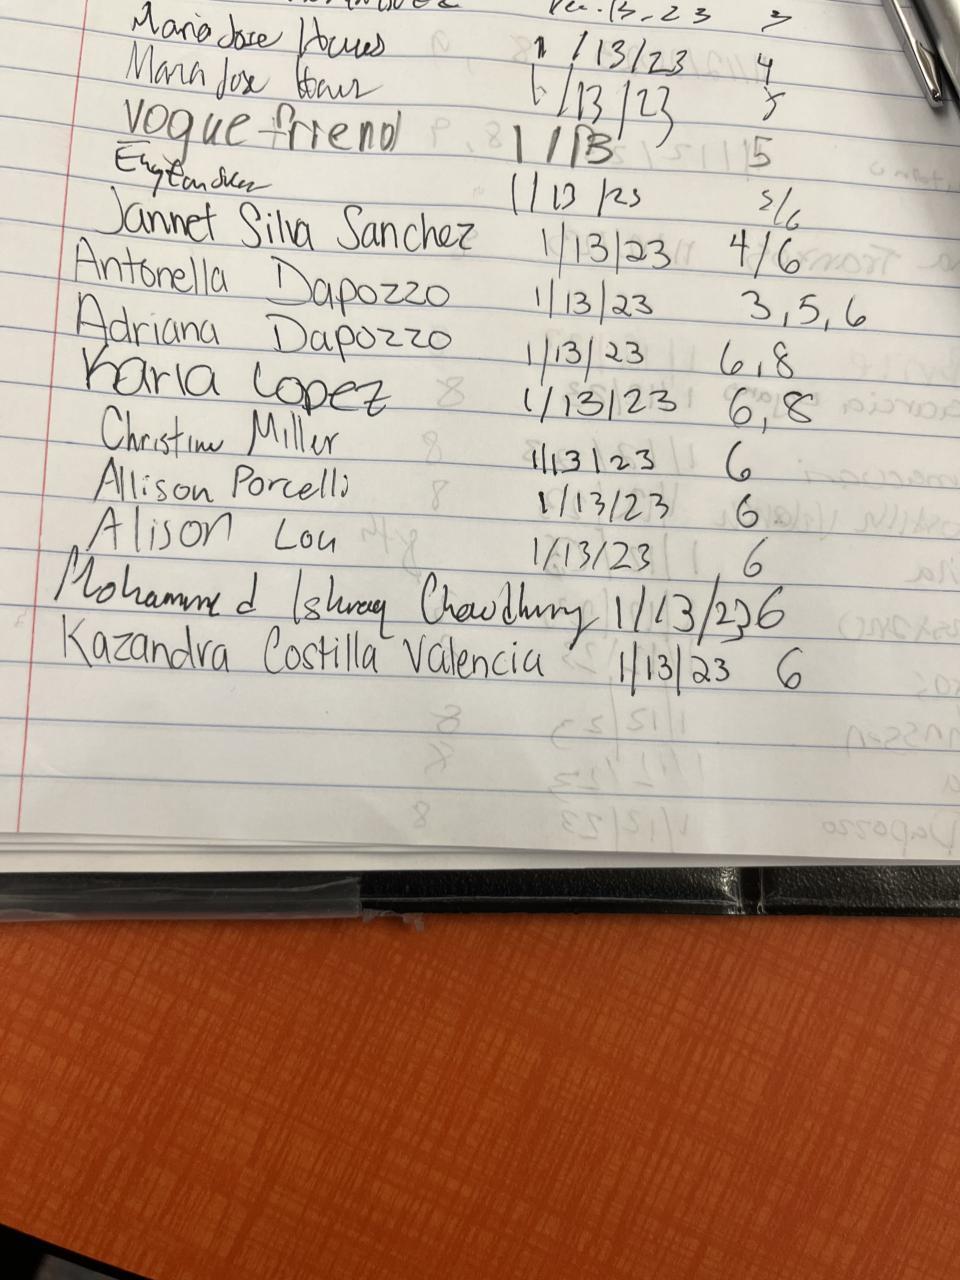 13-23 3
Maria Jose 1/13/23 4
Maria Jose 1/13/23 5
Vogue friend 1/13 5
1/13/23 5/6
Jannet Silva Sanchez 1/13/23 4/6
Antonella Dapozzo 1/13/23 3,5,6
Adriana Dapozzo 1/13/23 6,8
Karla Lopez 1/13/23 6,8
Christine Miller 1/13/23 6
Allison Porcelli 1/13/23 6
Alison Lou 1/13/23 6
Mohammed Ishraq Chowdhury 1/13/23 6
Kazandra Costilla Valencia 1/13/23 6